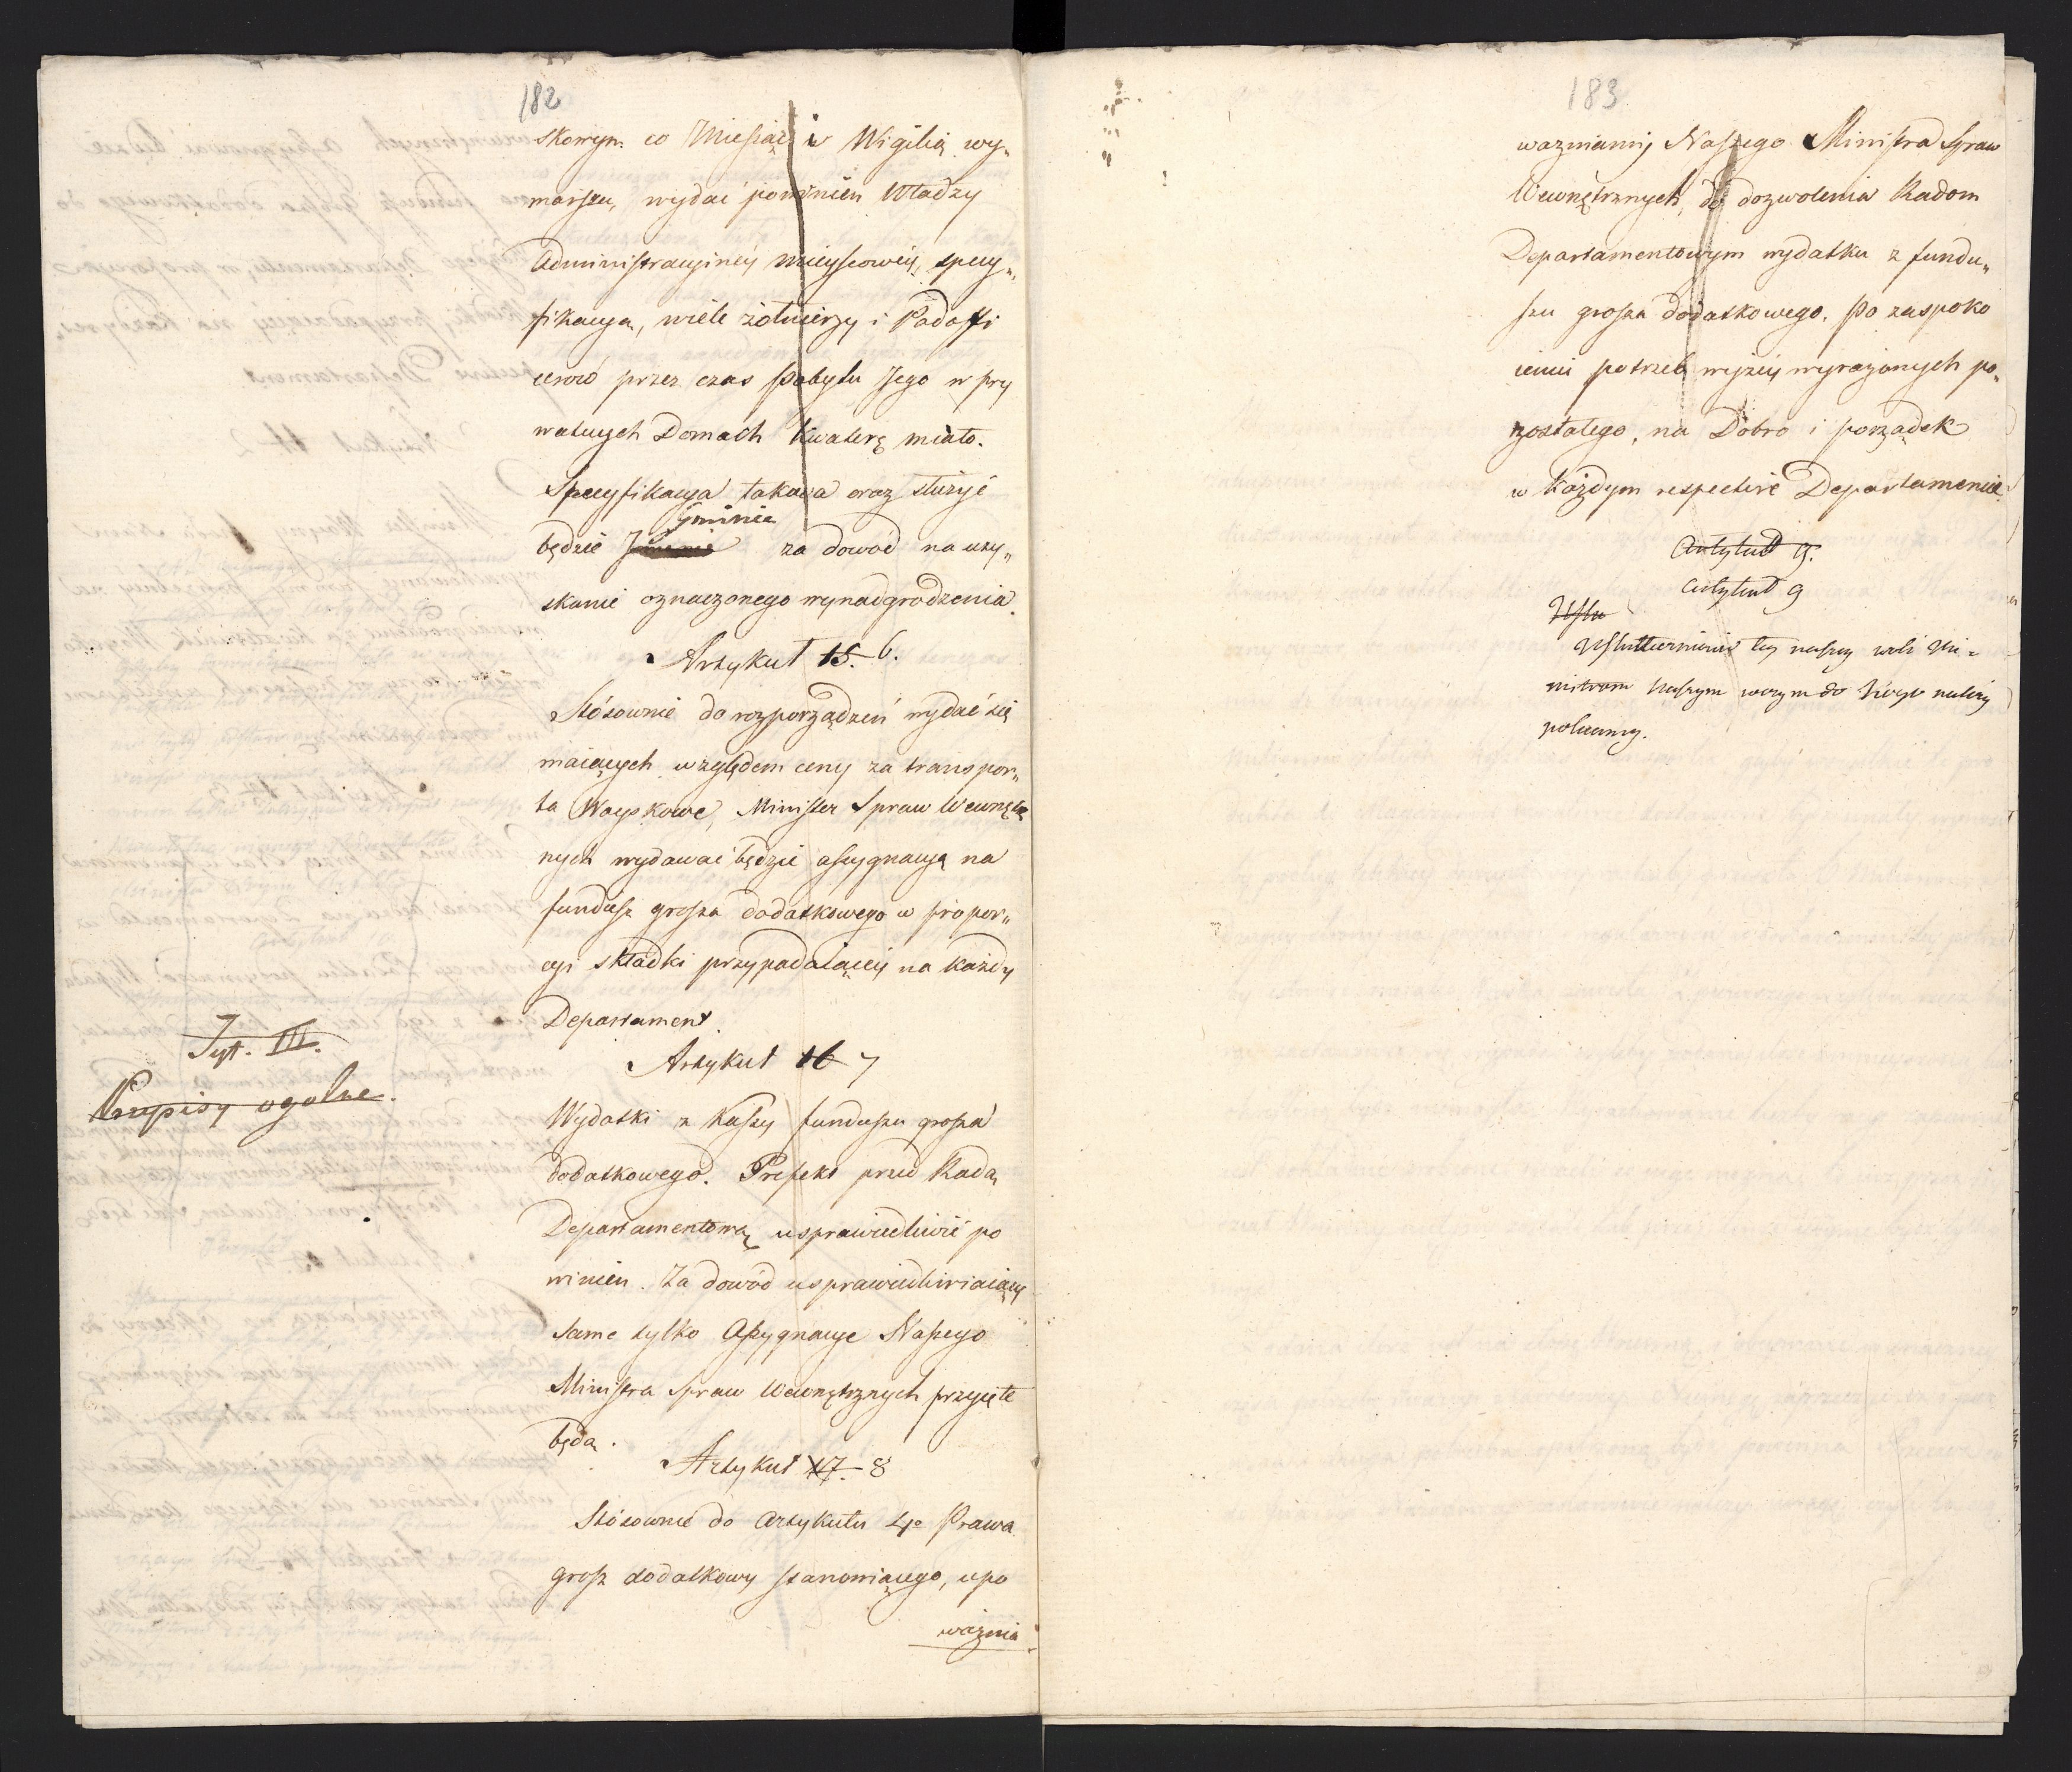 182
skowym. co Miesiąc i w Wigilią wy„
marszu, wydać powinien Władzy
Administracyiney mieyscowey, specy„
fikacyą, wiele żołnierzy i Podoffi
cerów przez czas pobytu Jego w pry
watnych Domach kwaterę miało.
Specyfikacya takowa oraz służyć
gminie
będzie za dowód na uzy„
skanie oznaczonego wynadgrodzenia.
Artykuł 15. 6.
Stósownie do rozporządzeń wydać się
maiących względem ceny za transpor„
ta Woyskowe, Minister Spraw Wewnętrz
nych wydawać będzie assygnacyą na
fundusz grosza dodatkowego w propor„
cyi składki przypadaiącey na każdy
Departament.
Tyt. III.
Przepisy ogolne.
Artykuł 16 7
Wydatki z kassy funduszu grosza
dodatkowego. Prefekt przed Radą
Departamentową usprawiedliwić po
winien. Za dowód usprawiedliwiaiący
same tylko Assygnacye Naszego
Ministra Spraw Wewnętrznych przyięte
będą.
Artykuł 17. 8
Stósownie do Artykułu 4o Prawa
grosz dodatkowy stanowiącego, upo
ważnia
183
ważniamy Naszego Ministra Spraw
Wewnętrznych, do dozwolenia Radom
Departamentowym wydatku z fundu„
szu grosza dodatkowego. Po zaspoko
ieniu potrzeb wyżey wyrażonych po„
zostałego, na Dobro i porządek
w każdym respective Departamencie.
Artykuł 9.
Artykuł 9
Usku
Uskutecznienie tey naszey woli Mi=
nistrom Naszym w czym do kogo należy
polecamy.